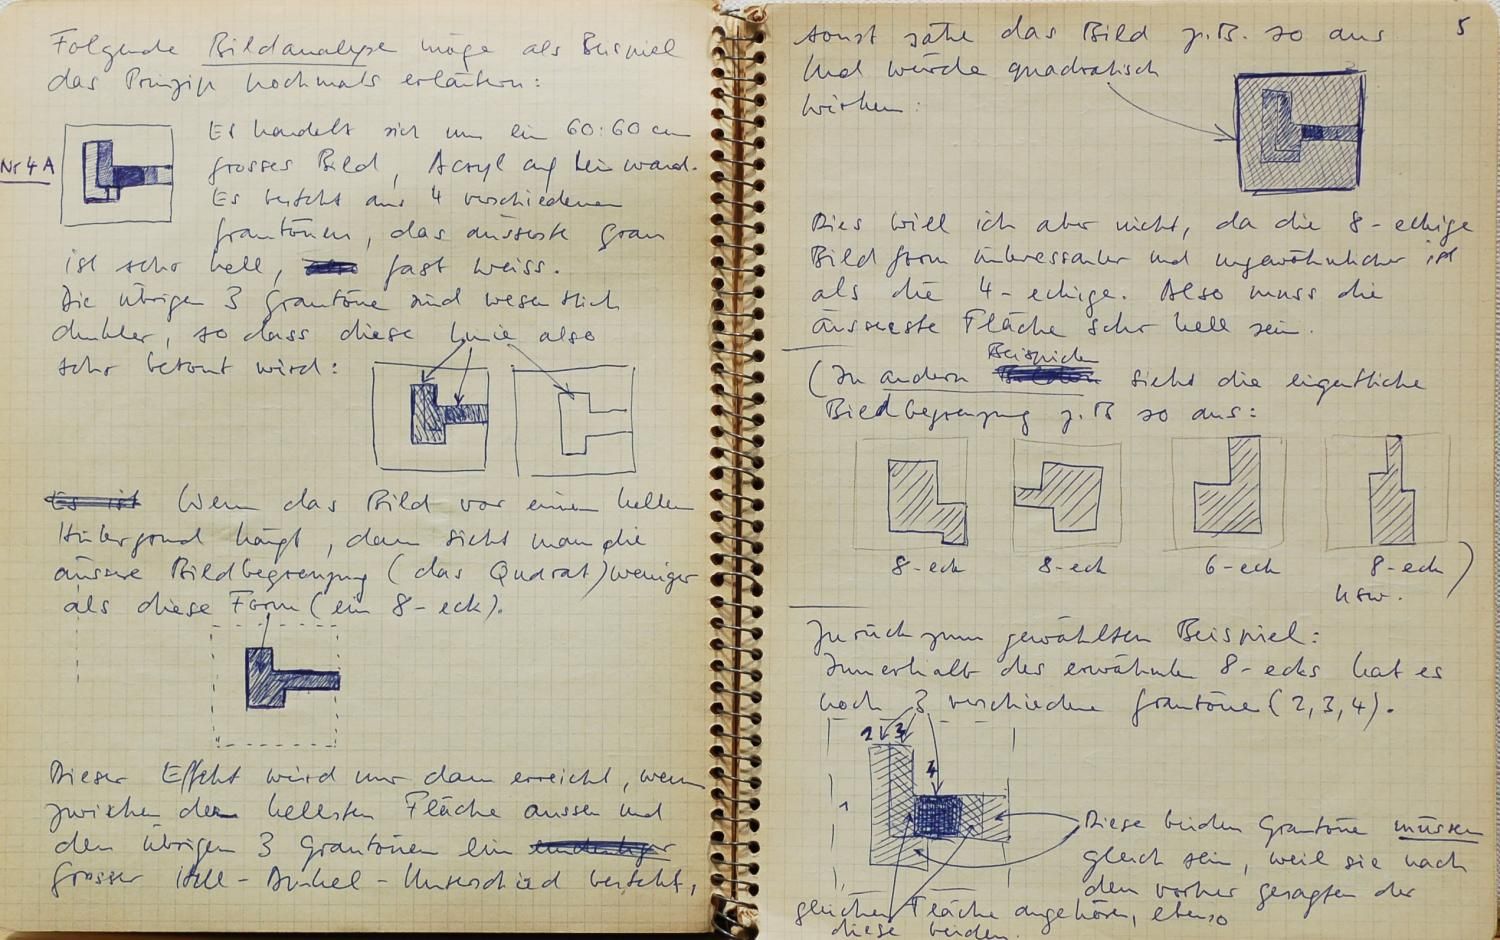 Folgende Bildanalyse möge als Beispiel
das Prinzip nochmals erläutern:
Nr 4A
Es handelt sich um ein 60:60 cm
grosses Bild, Acryl auf Leinwand.
Es besteht aus 4 verschiedenen
Grautönen, das äusserste Grau
ist sehr hell, fast weiss.
Die übrigen 3 Grautöne sind wesentlich
dunkler, so dass diese Linie also
sehr betont wird:
Es ist Wenn das Bild vor einem hellen
Hintergrund hängt, dann sieht man die
äussere Bildbegrenzung (das Qudrat) weniger
als diese Form (ein 8-eck).
Dieser Effekt wird nur dann erreicht, wenn
zwischen der hellsten Fläche aussen und
den übrigen 3 Grautönen ein eindeutiger
grosser Hell-Dunkel-Unterschied besteht,
5
sonst sähe das Bild z.B. so aus
und würde quadratisch
wirken:
Dies will ich aber nicht, da die 8-eckige
Bildform interessanter und ungewöhnlicher ist
als die 4-eckige. Also muss die
äusserste Fläche sehr hell sein.
Beispielen
(In andern sieht die eigentliche
Bildbegrenzung z.B so aus:
8-eck 8-eck 6-eck 8-eck )
usw.
Zurück zum gewählten Beispiel:
Innerhalb des erwähnten 8-ecks hat es
noch 3 verschiedene Grautöne (2,3,4).
2 3
4
1
Diese beiden Grautöne müssen
gleich sein, weil sie nach
dem vorher gesagten der
gleichen Fläche angehören, ebenso
diese beiden.